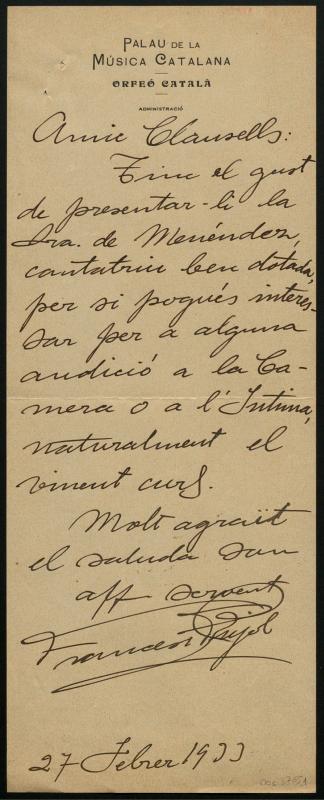 PALAU DE LA
MÚSICA CATALANA
ORFEÓ CATALÀ
ADMINISTRACIÓ
Amic Clausells:
Tinc el gust
de presentar-li la
Sra. de Menéndez,
cantatriu ben dotada,
per si pogués interes-
sar per a alguna
audició a la Cà-
mera o a l'Íntima,
naturalment el
vinent curs.
Molt agraït
el saluda son
aff servent
Francesc Pujol
27 Febrer 1933